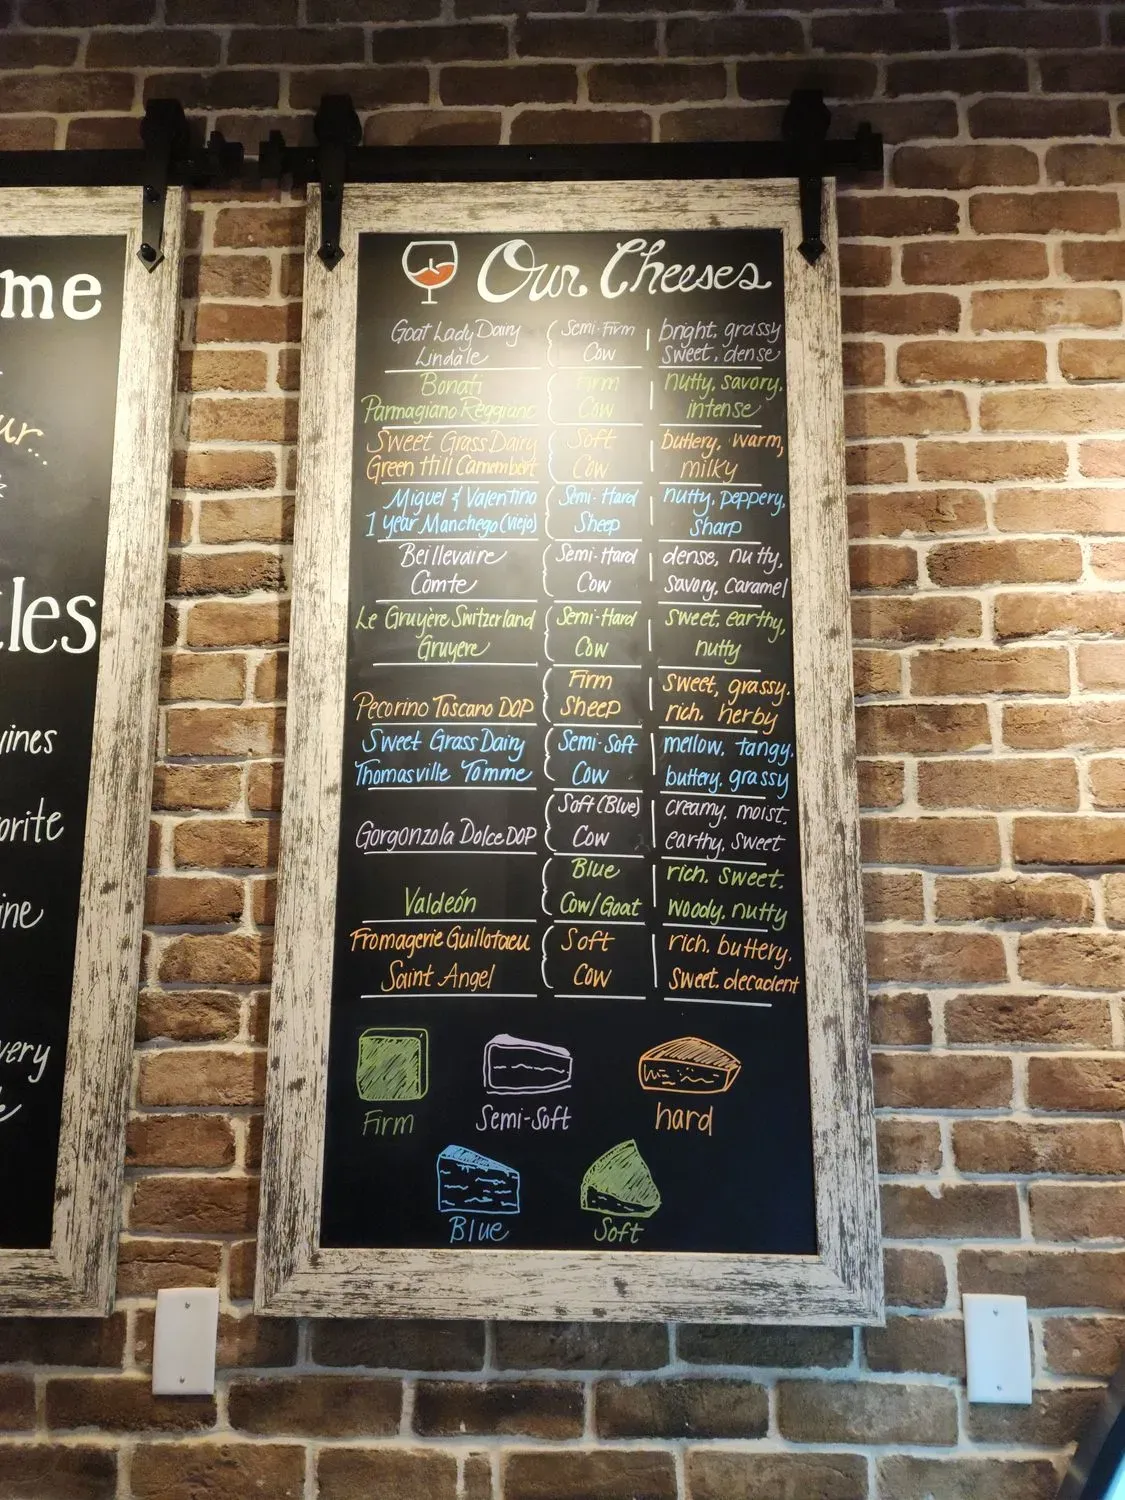 me
ur
les
vines
orite
ine
very
Our Cheeses
Goat Lady Dairy { Semi-Firm | bright, grassy
Lindale Cow sweet, dense
Bonati { Firm | nutty, savory,
Parmagiano Reggiano Cow intense
Sweet Grass Dairy { Soft | buttery, warm,
Green Hill Camembert Cow milky
Miguel & Valentino { Semi-Hard | nutty, peppery,
1 year Manchego (Viejo) Sheep sharp
Beillevaire { Semi-Hard | dense, nutty,
Comte Cow savory, caramel
Le Gruyère Switzerland { Semi-Hard | sweet, earthy,
Gruyere Cow nutty
Firm | sweet, grassy.
Pecorino Toscano DOP { Sheep rich. herby
Sweet Grass Dairy { Semi-Soft | mellow, tangy.
Thomasville Tomme Cow buttery. grassy
Soft (Blue) | creamy. moist.
Gorgonzola Dolce DOP { Cow earthy, sweet
Blue | rich. sweet.
Valdeón { Cow/Goat woody. nutty
Fromagerie Guilloteau { Soft | rich. buttery.
Saint Angel Cow sweet. decadent
Firm Semi-Soft hard
Blue Soft